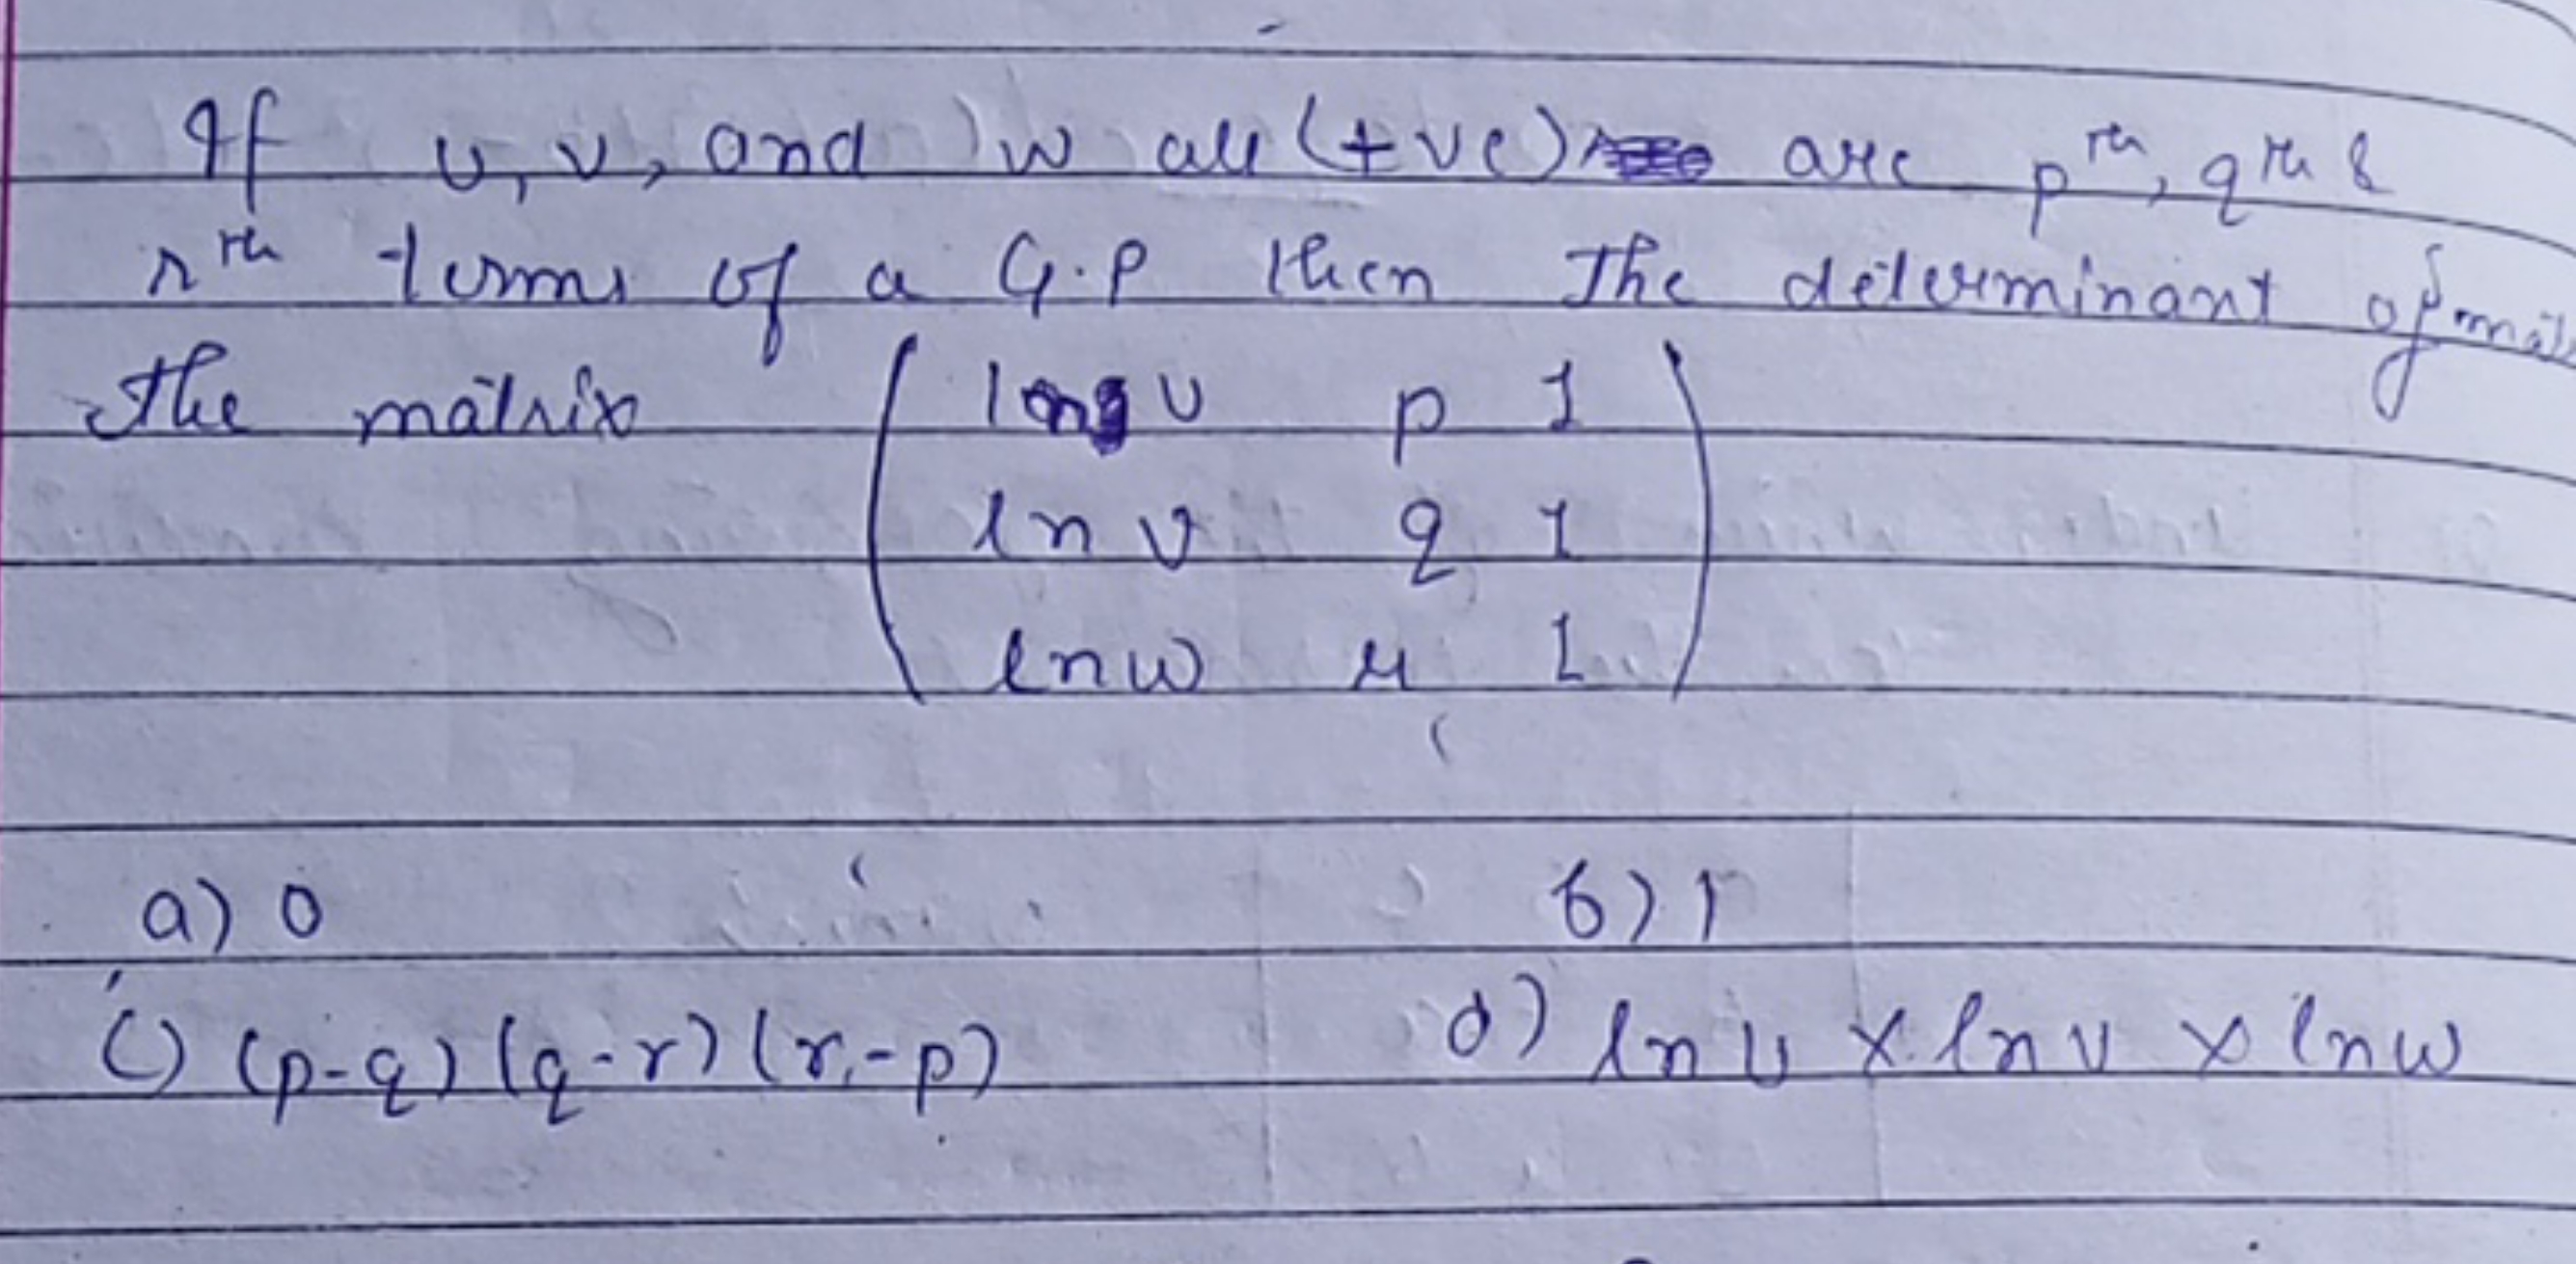 If u, v, and w all (+ve) are pth, qth &
rth terms of a G.P then The determinant of
the matrix
ln u p 1
ln v q 1
ln w r 1
a) 0 b) 1
c) (p-q) (q-r) (r-p) d) ln u x ln v x ln w